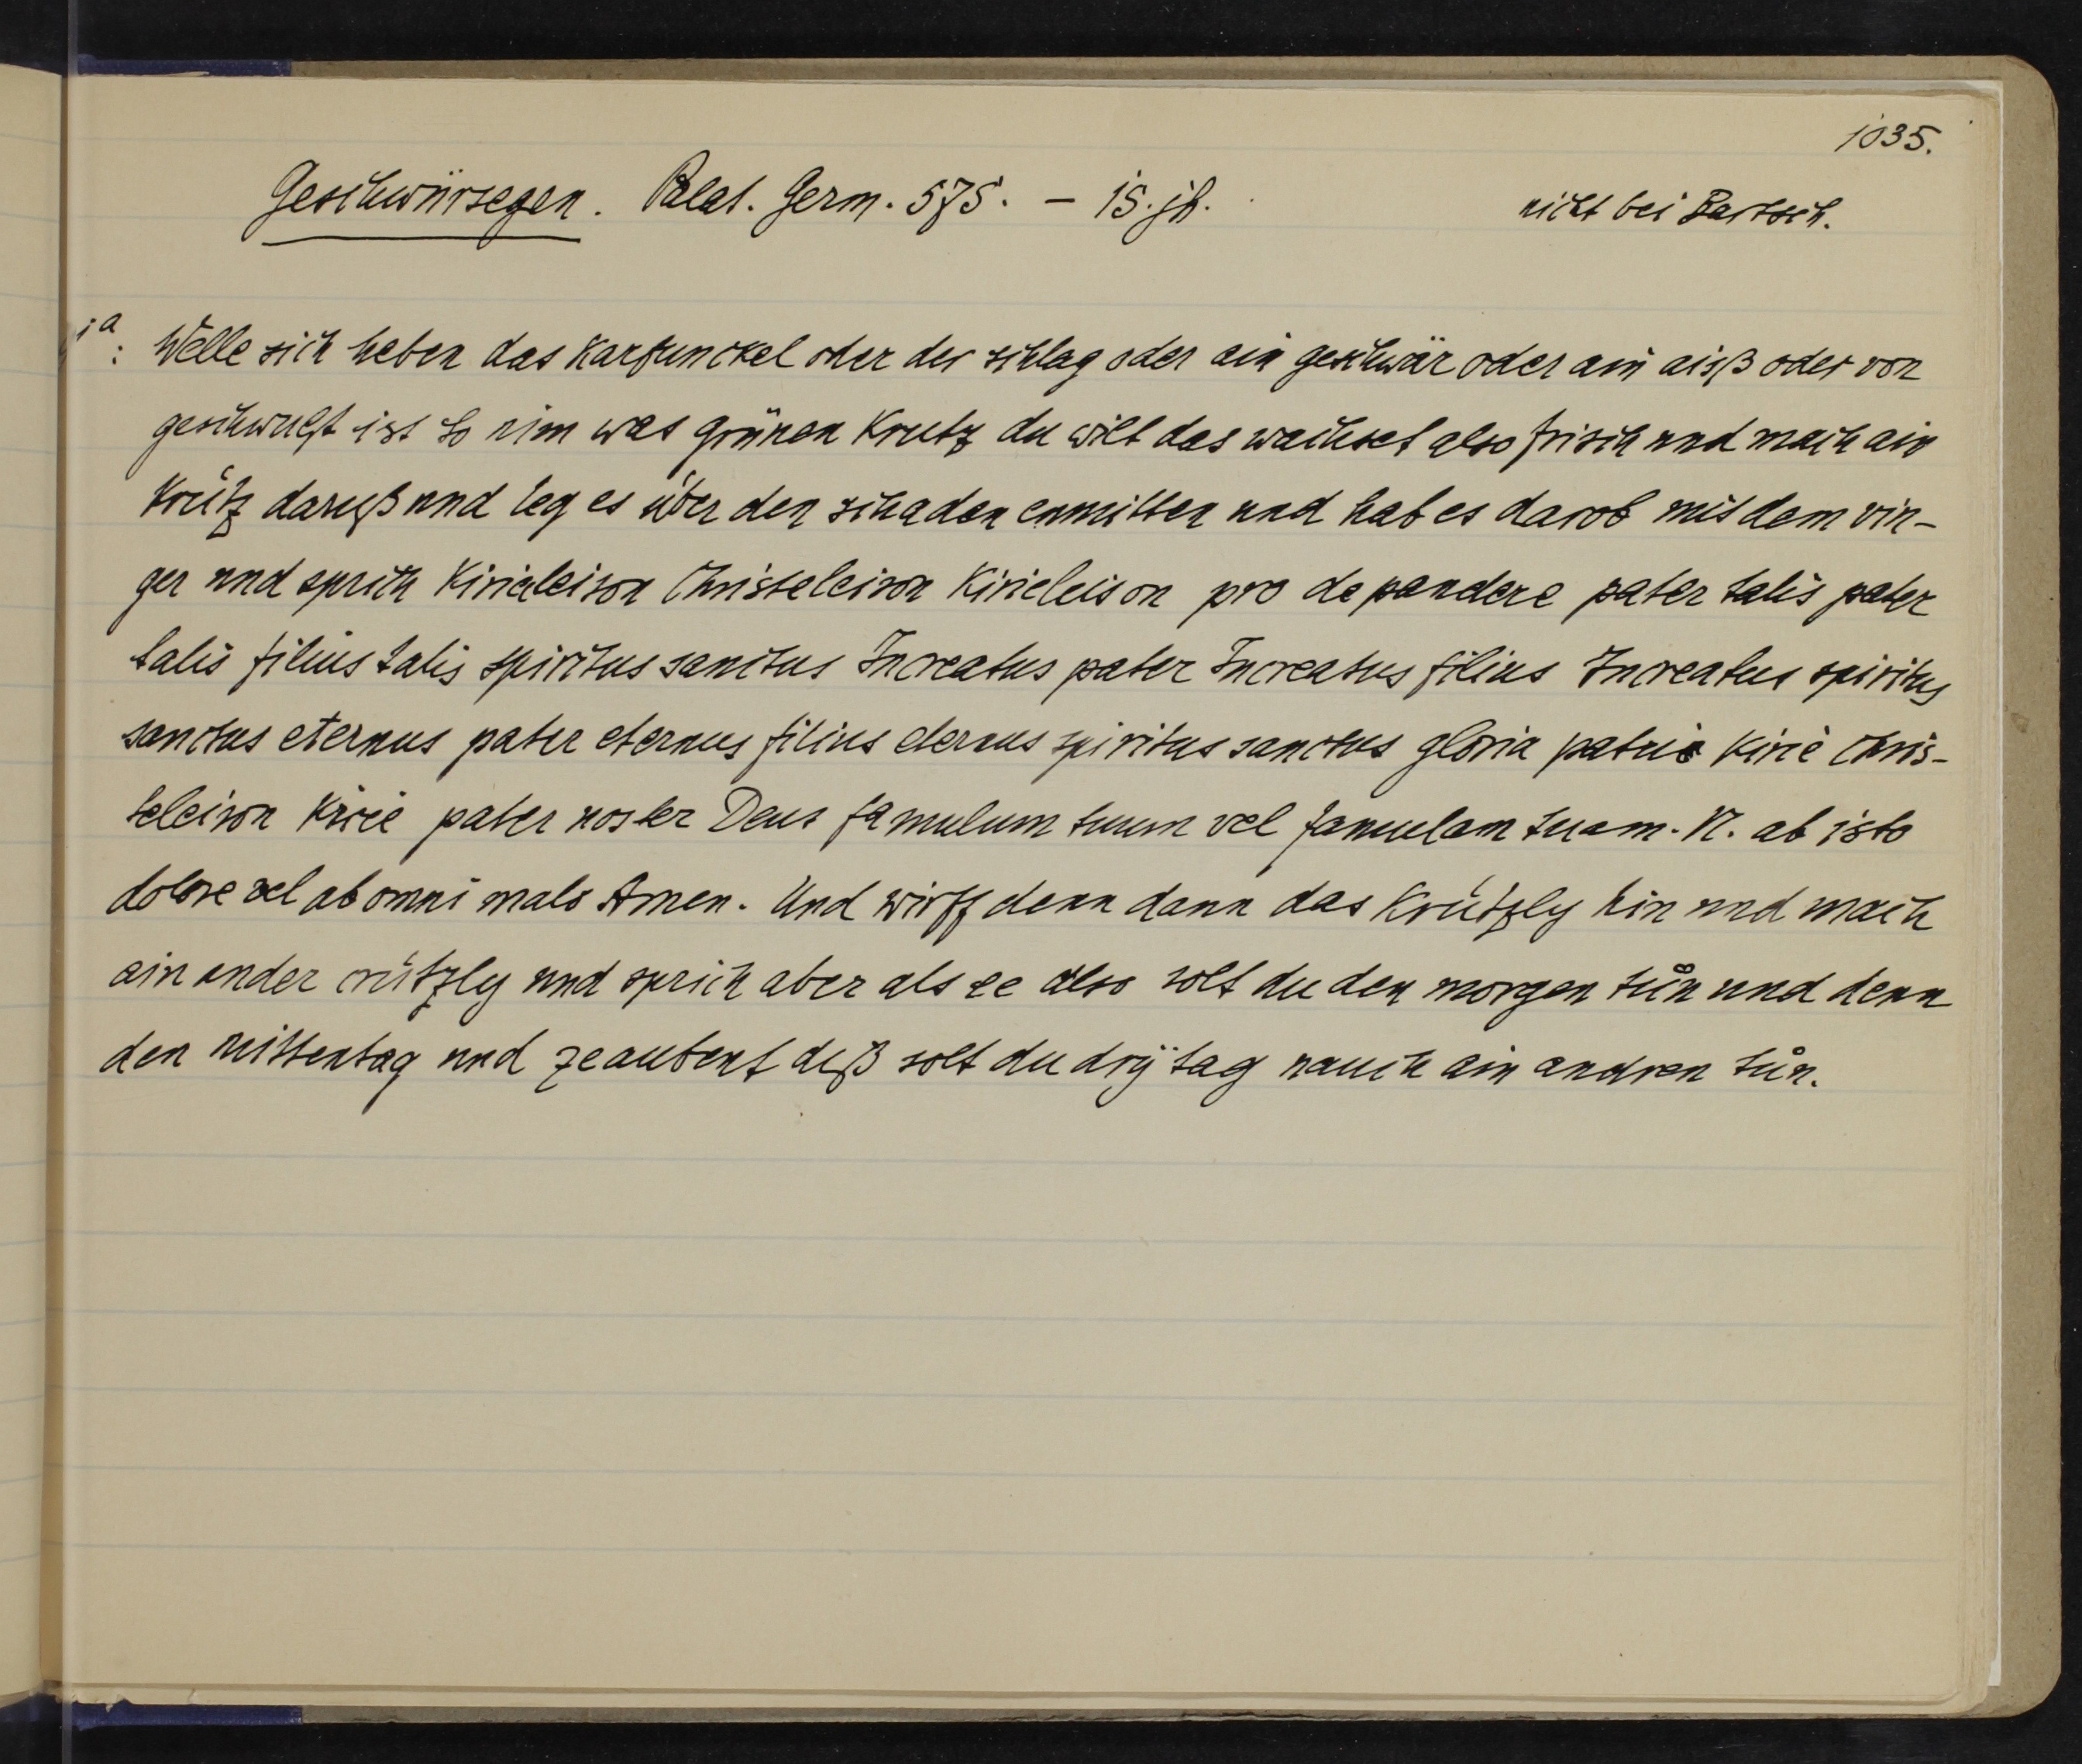 1035.
Geschwürsegen. Palat. Germ. 575. – 15. jh. nicht bei Bartsch.
1a: Welle sich heben das karfunckel oder der schlag oder ain geschwär oder ain aisß oder von
geschwulst ist so nim was grünen krutz du wilt das wachset also frisch und mach ain
krütz daruß und leg es über den schaden enmitten und hab es darob mit dem vin-
ger und sprich Kirieleison Christeleison Kirieleison pro depandere pater talis pater
talis filius talis spiritus sanctus Increatus pater Increatus filius Increatus spiritus
sanctus eternus pater eternus filius eternus spiritus sanctus gloria patri kirie Chris-
teleison kirie pater noster Deus famulum tuum vel famulam tuam. N. ab isto
dolore vel ab omni malo Amen. Und wirff denn dann das krützly hin und mach
ain ander crützly und sprich aber als ee also solt du den morgen tůn und denn
den mittentag und zeaubent diß solt du drÿ tag nauch ain andren tůn.